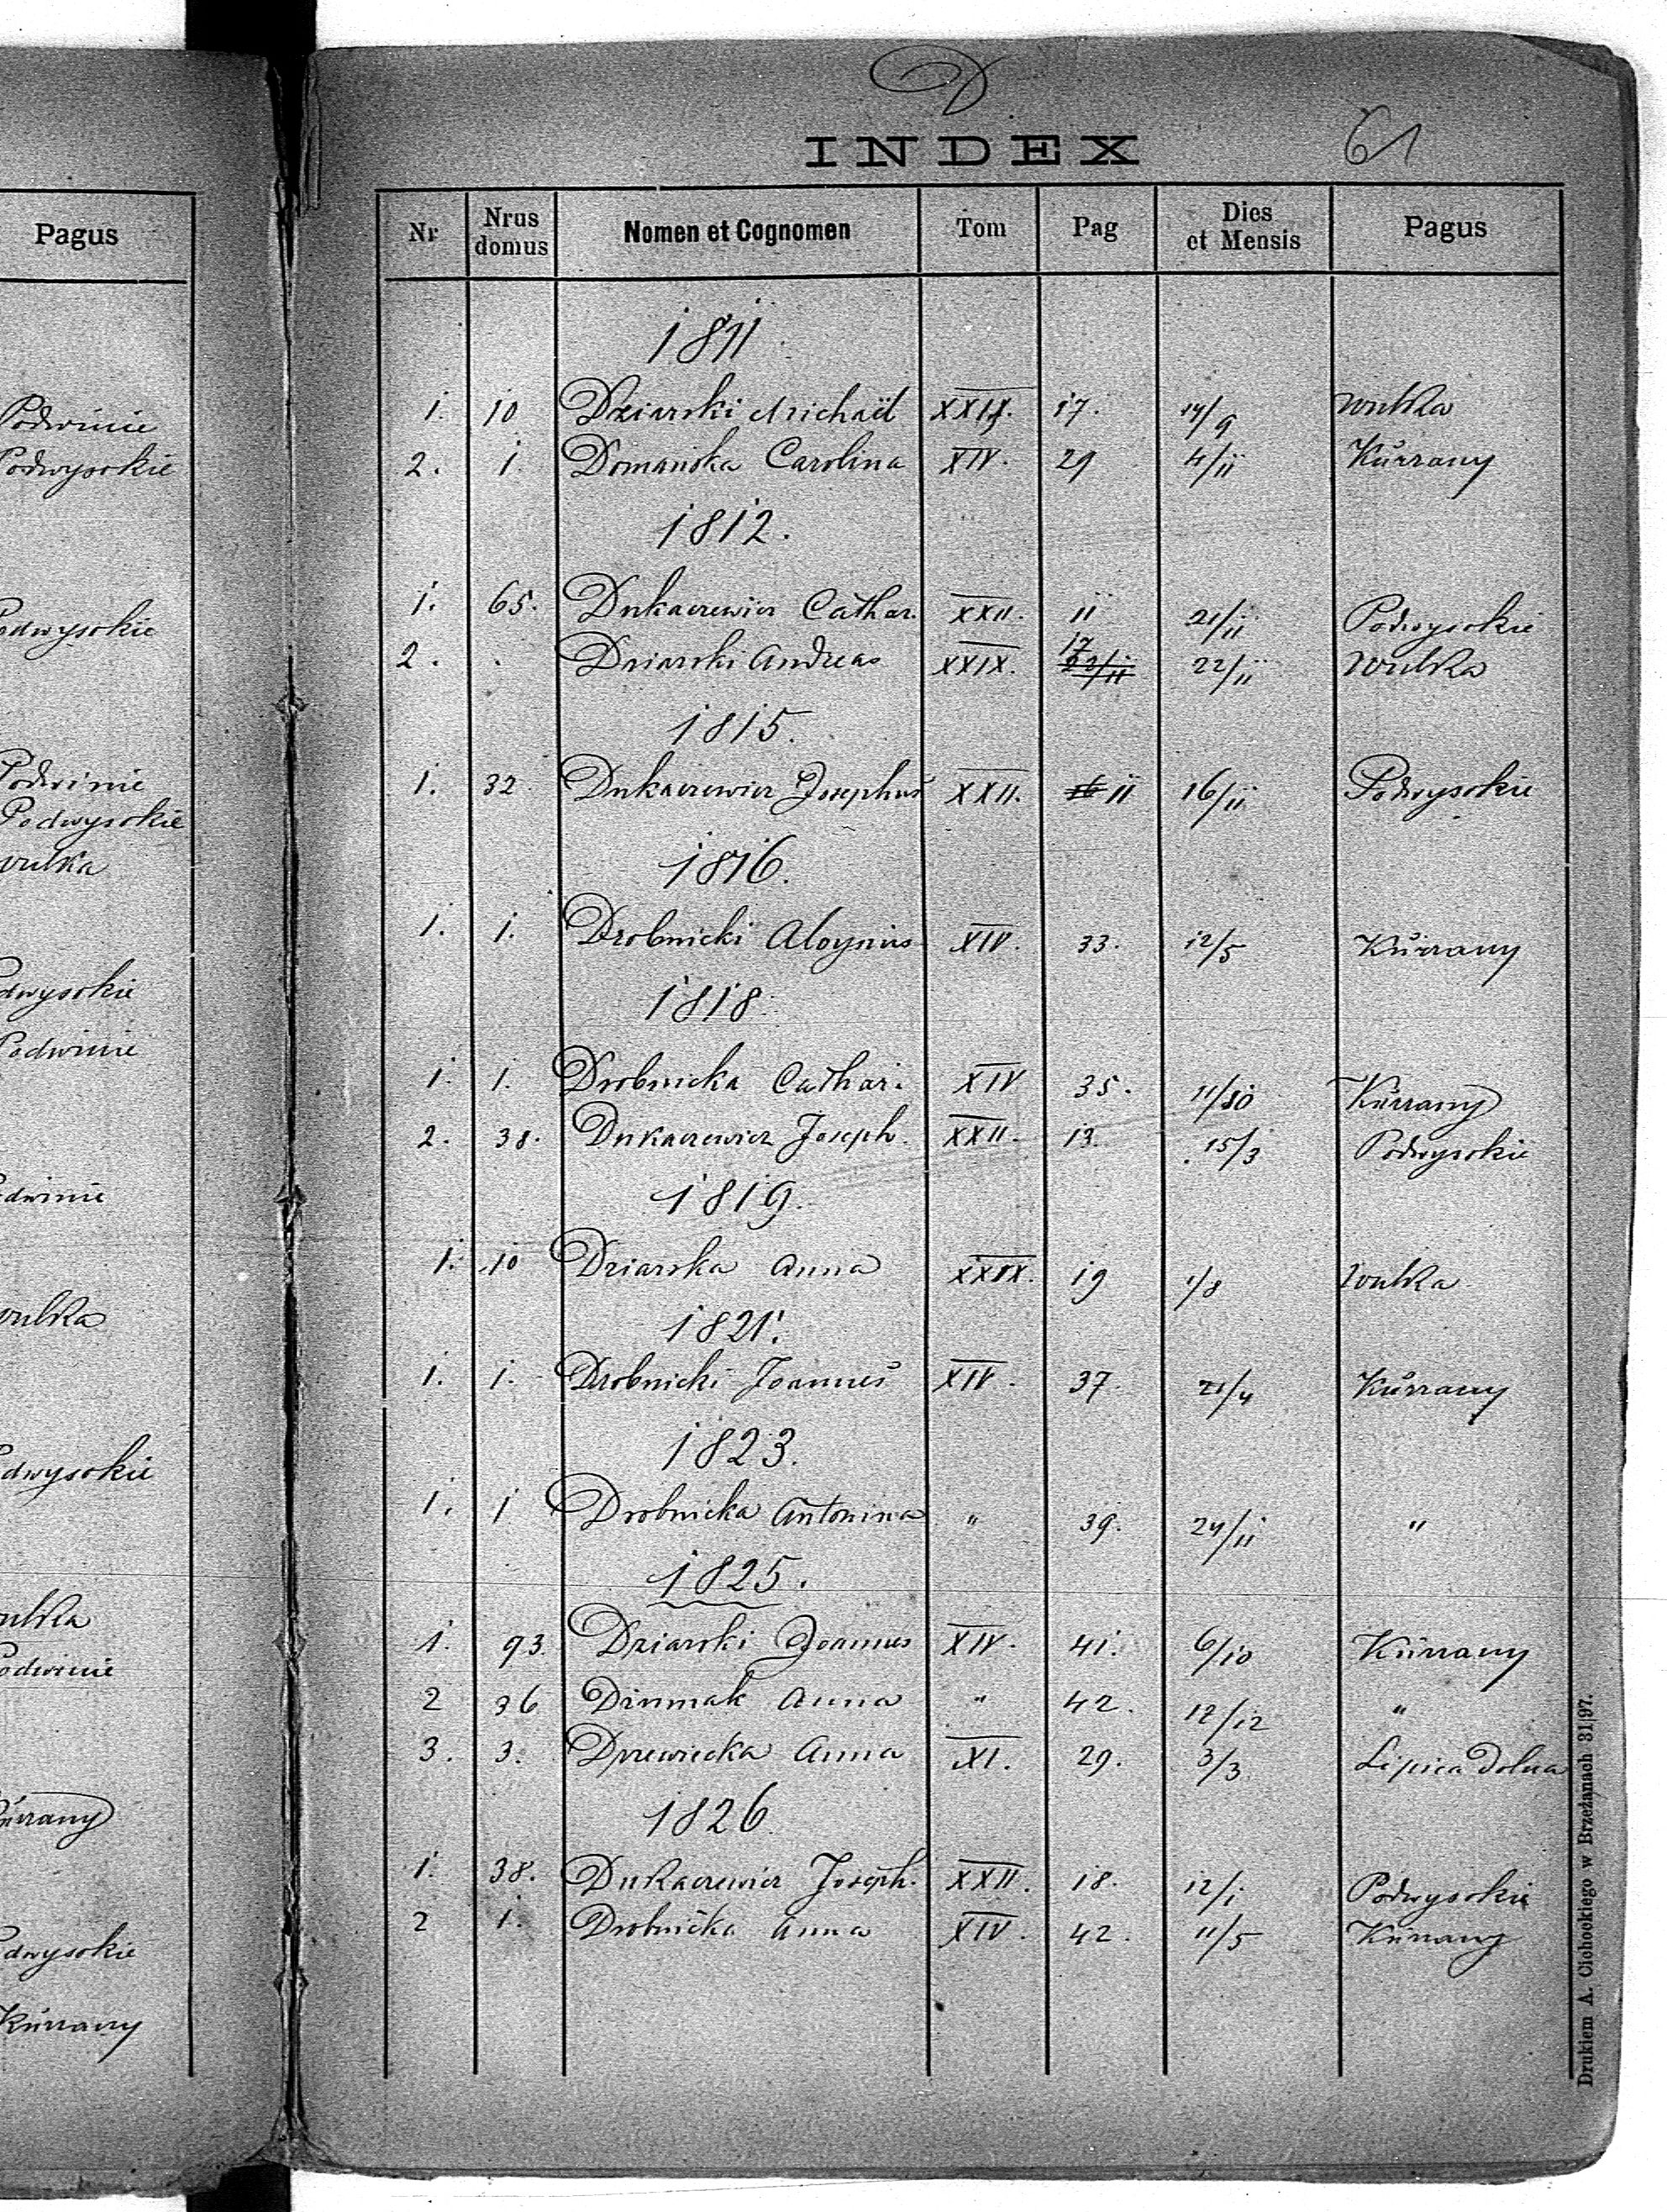 Pagus
Podwinie
Podwysokie
odwysokie
Podwinie
Podwysokie
wulka
dwysokie
Podwinie
dwinie
wulka
dwysokie
ulka
odwinie
ürrany
dwysokie
Kürrany
D.
INDEX 61
Nr Nrus domus Nomen et Cognomen Tom Pag Dies et Mensis Pagus
1811
1. 10 Dziarski Michaël XXIX. 17. 14/9 Wulka
2. 1. Domańska Carolina XIV. 29 4/11 Kürrany
1812.
1. 65. Dukaerewicz Cathar. XXII. 11 21/11 Podwysokie
2. . Dziarski Andreas XXIX. 17 22/11 22/11 Wulka
1815.
1. 32 Dukaerewicz Josephus XXII. 16 11 16/11 Podwysokie
1816.
1. 1. Drobnicki Aloysius XIV. 33. 12/5 Kürrany
1818.
1. 1. Drobnicka Cathar. XIV 35. 11/10 Kürrany
2. 38. Dukaerewicz Joseph. XXII. 13. 15/3 Podwysokie
1819.
1. 10 Dziarska Anna XXIX. 19 1/8 Wulka
1821.
1. 1. Drobnicki Joannes XIV. 37. 21/4 Kürrany
1823.
1. 1 Drobnicka Antonina " 39. 24/11 "
1825.
1. 93. Dziarski Joannes XIV. 41. 6/10 Kürrany
2 36 Anna " 42. 12/12 "
3. 3. Drzewiecka Anna XI. 29. 3/3 Lipica Dolna
1826.
1. 38. Dukaerewicz Joseph. XXII. 18. 12/1 Podwysokie
2 1. Drobnicka Anna XIV. 42. 11/5 Kürrany
Drukiem A. Cichockiego w Brzeżanach 31|97.